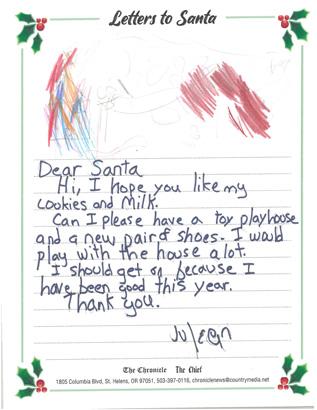 Letters to Santa
Dear Santa
Hi, I hope you like my
cookies and Milk.
Can I please have a toy playhouse
and a new pair of shoes. I would
play with the house a lot.
I should get because I
have been good this year.
Thank you.
The Chronicle The Chief
1805 Columbia Blvd, St. Helens, OR 97051, 503-397-0116, chroniclenews@countrymedia.net